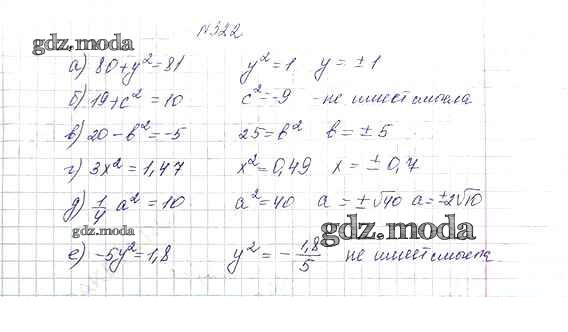 №322
gdz.moda
а) 80+y²=81 y²=1 y=±1
б) 19+c²=10 c²=-9 -не имеет смысла
в) 20-b²=-5 25=b² b=±5
г) 3x²=1,47 x²=0,49 x=±0,7
д) 1/4 a²=10 a²=40 a=±√40 a=±2√10
gdz.moda
gdz.moda
е) -5y²=1,8 y²=-1,8/5 не имеет смысла